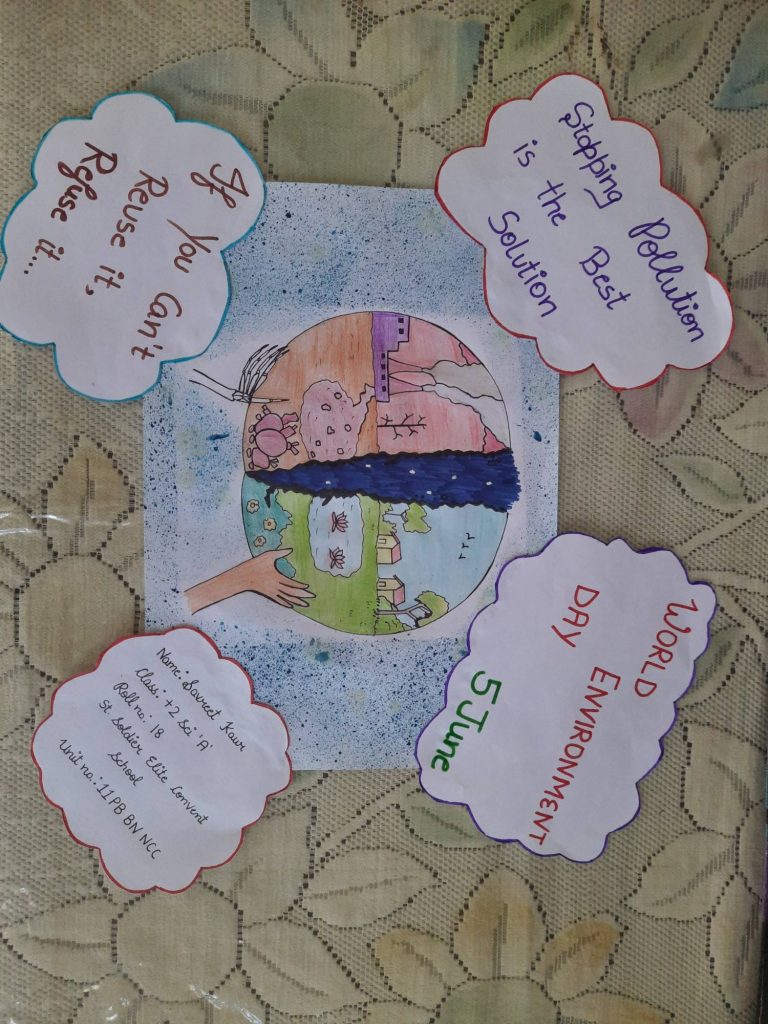 Stopping Pollution
is the Best
Solution
WORLD ENVIRONMENT
DAY
5 June
If You Can't
Reuse it,
Refuse it...
Name: Savreet Kaur
Class: +2 Sci 'A'
Roll no.: 18
St. Soldier Elite Convent
School
Unit no.: 11PB BN NCC